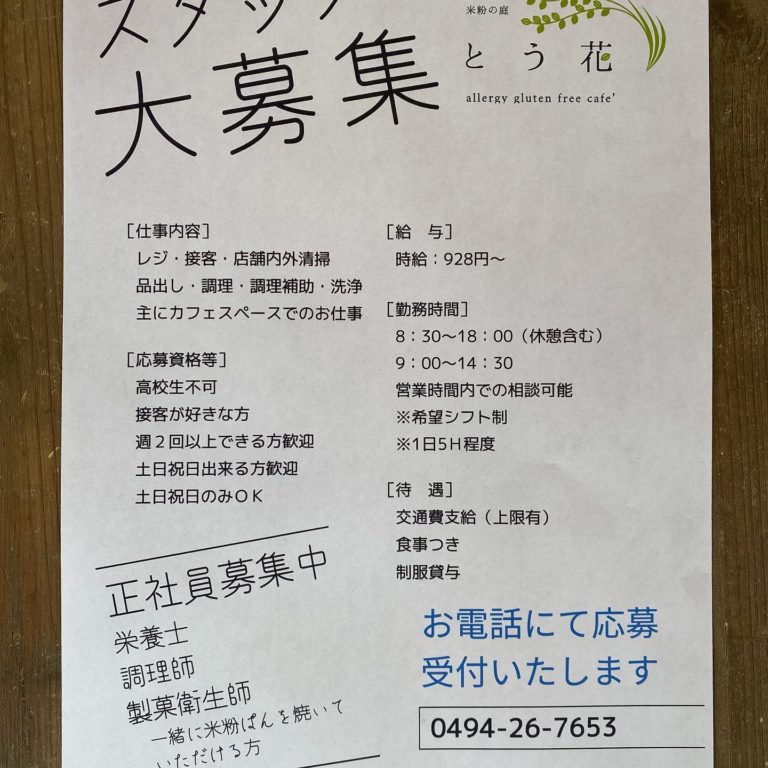 スタッフ
大募集
米粉の庭
とう花
allergy gluten free cafe’
［仕事内容］
レジ・接客・店舗内外清掃
品出し・調理・調理補助・洗浄
主にカフェスペースでのお仕事
［応募資格等］
高校生不可
接客が好きな方
週２回以上できる方歓迎
土日祝日出来る方歓迎
土日祝日のみＯＫ
［給　与］
時給：928円～
［勤務時間］
8：30～18：00（休憩含む）
9：00～14：30
営業時間内での相談可能
※希望シフト制
※1日5H程度
［待　遇］
交通費支給（上限有）
食事つき
制服貸与
正社員募集中
栄養士
調理師
製菓衛生師
一緒に米粉ぱんを焼いて
いただける方
お電話にて応募
受付いたします
0494-26-7653